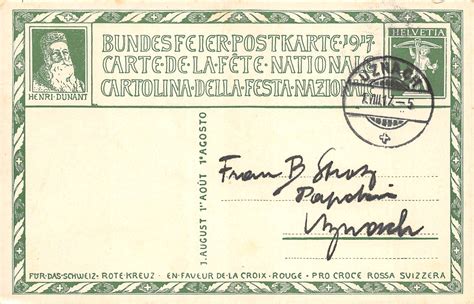 BUNDESFEIER-POSTKARTE·1917
CARTE·DE·LA·FÊTE·NATIONAL
CARTOLINA·DELLA·FESTA·NAZIONA
HENRI·DUNANT
HELVETIA
UZNACH
1.VIII.17.-5
1.AUGUST 1ER AOÛT 1O AGOSTO
Frau B Stotz
Papeterie
Uznach
FÜR·DAS·SCHWEIZ·ROTE·KREUZ - EN·FAVEUR DE LA CROIX·ROUGE - PRO CROCE ROSSA SVIZZERA